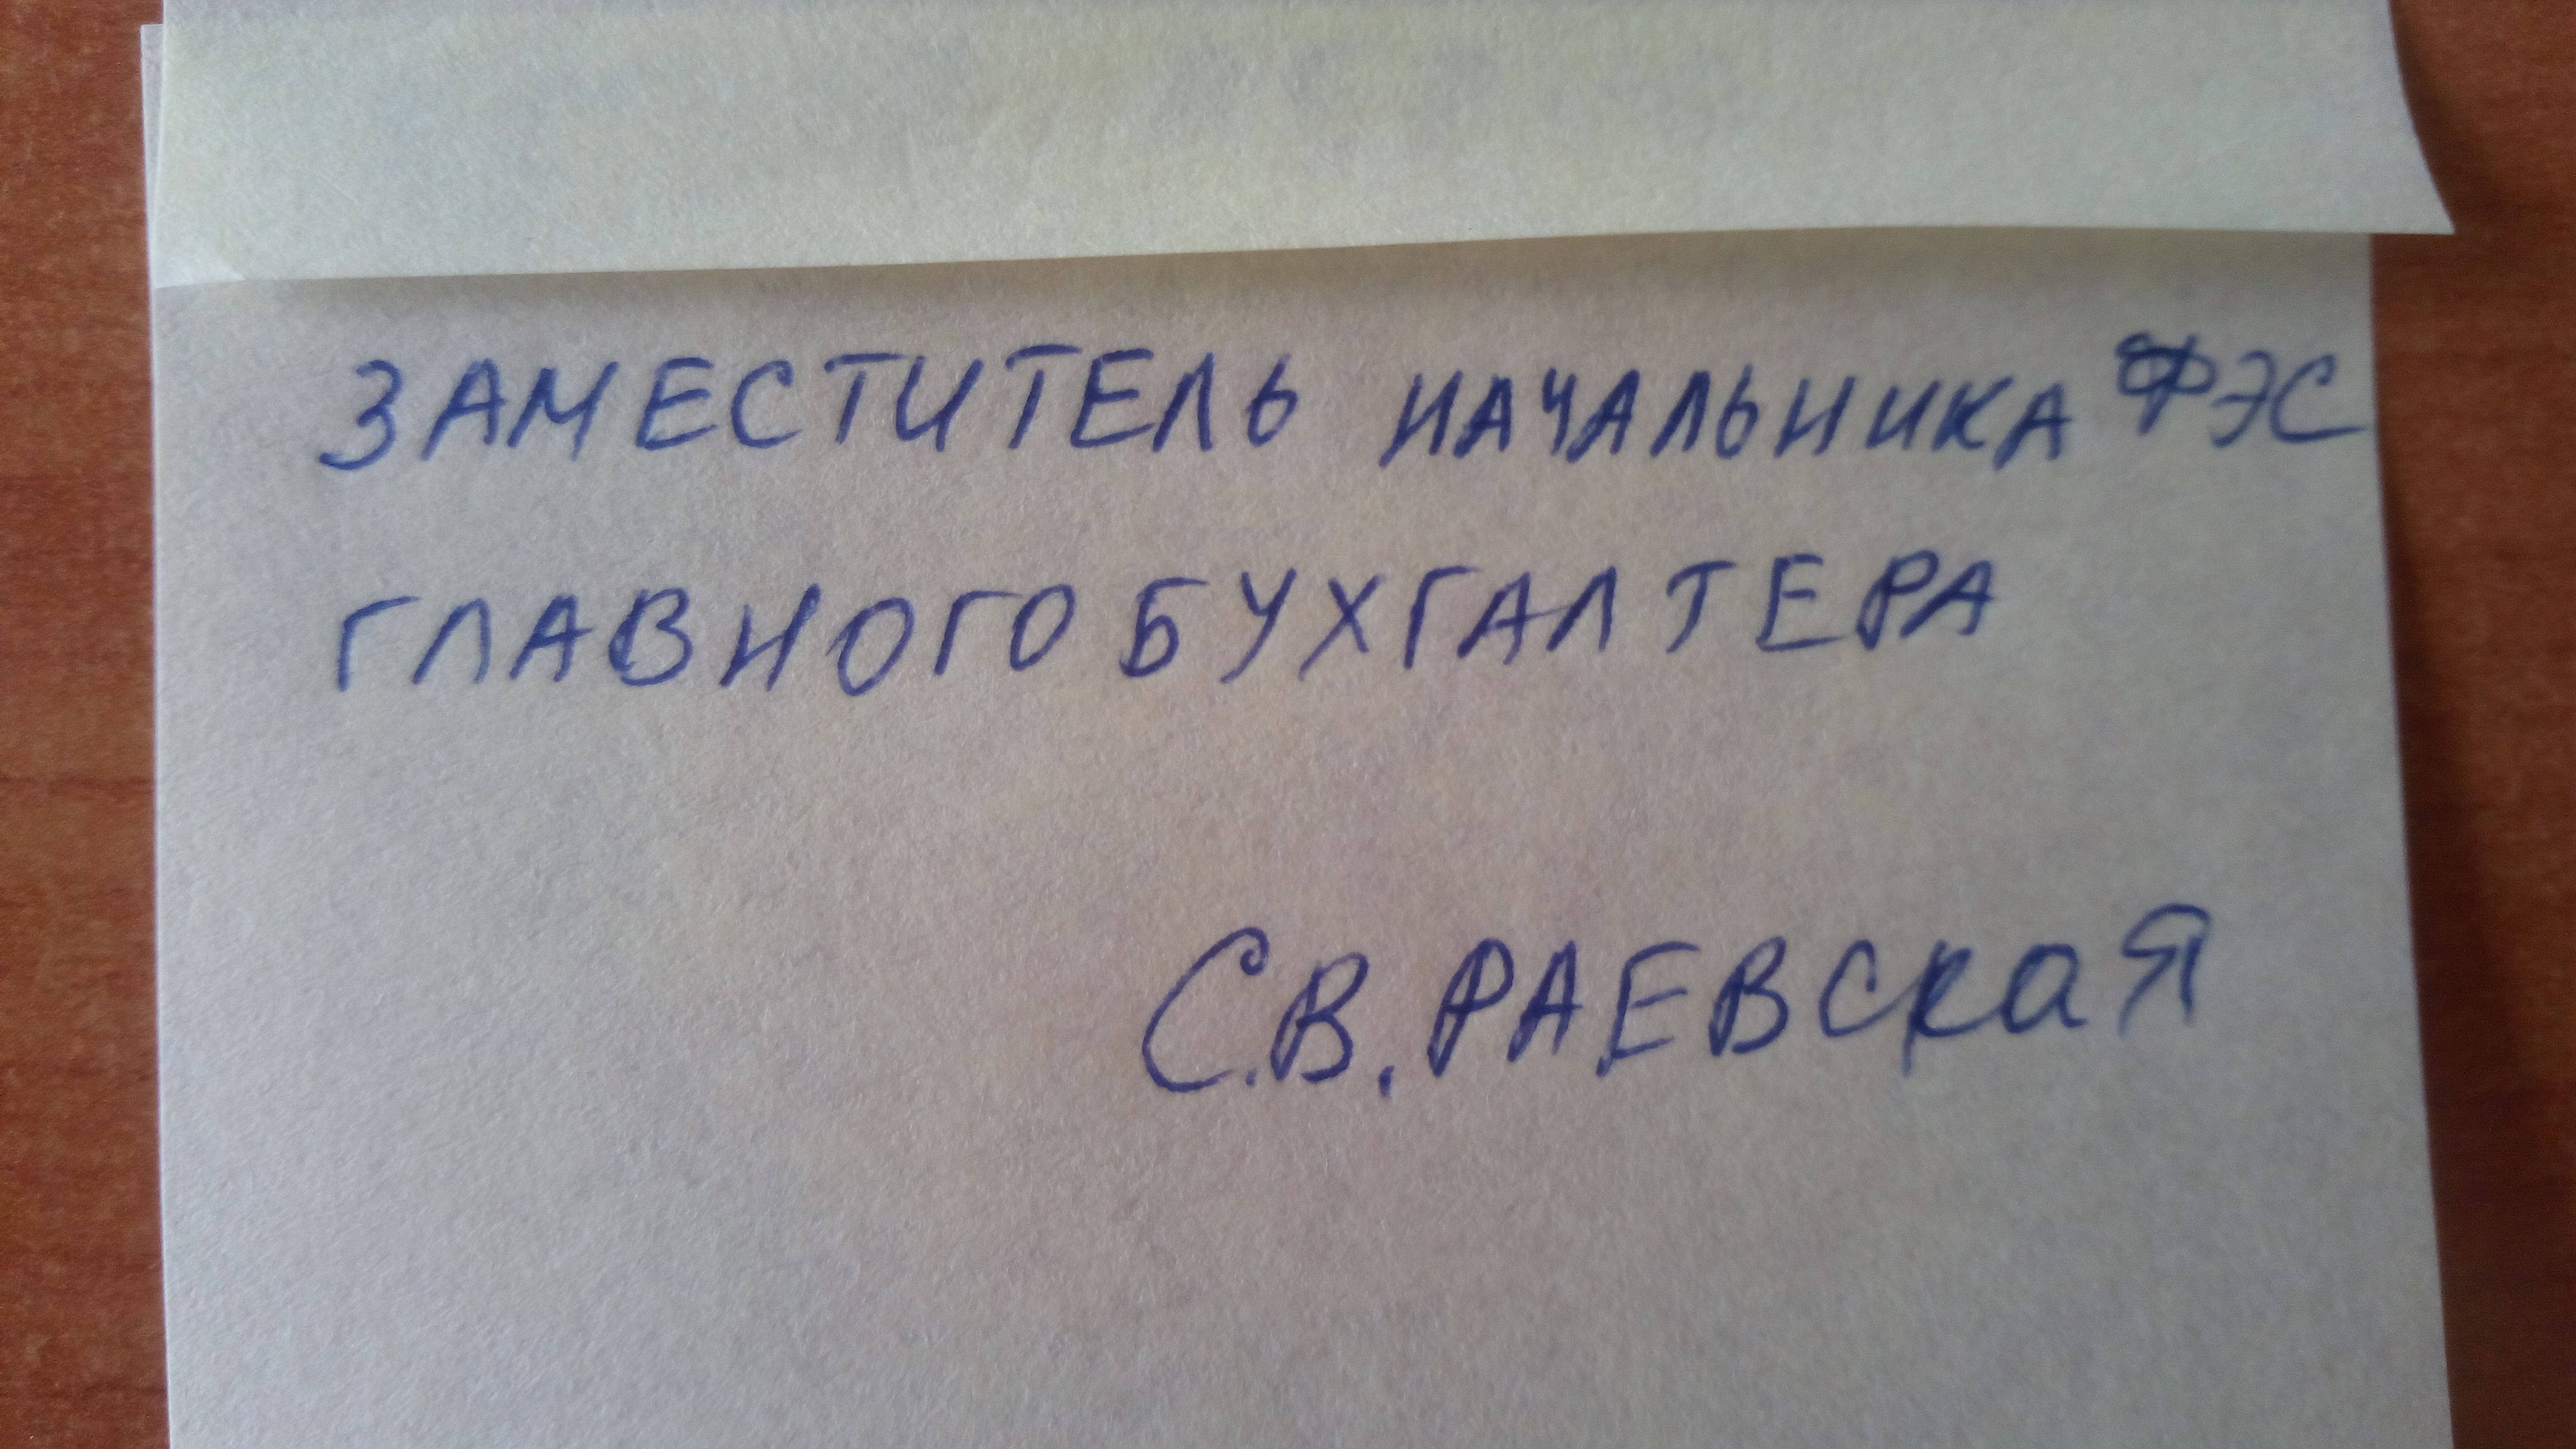 ЗАМЕСТИТЕЛЬ НАЧАЛЬНИКА ФЭС
ГЛАВНОГО БУХГАЛТЕРА
С.В. РАЕВская